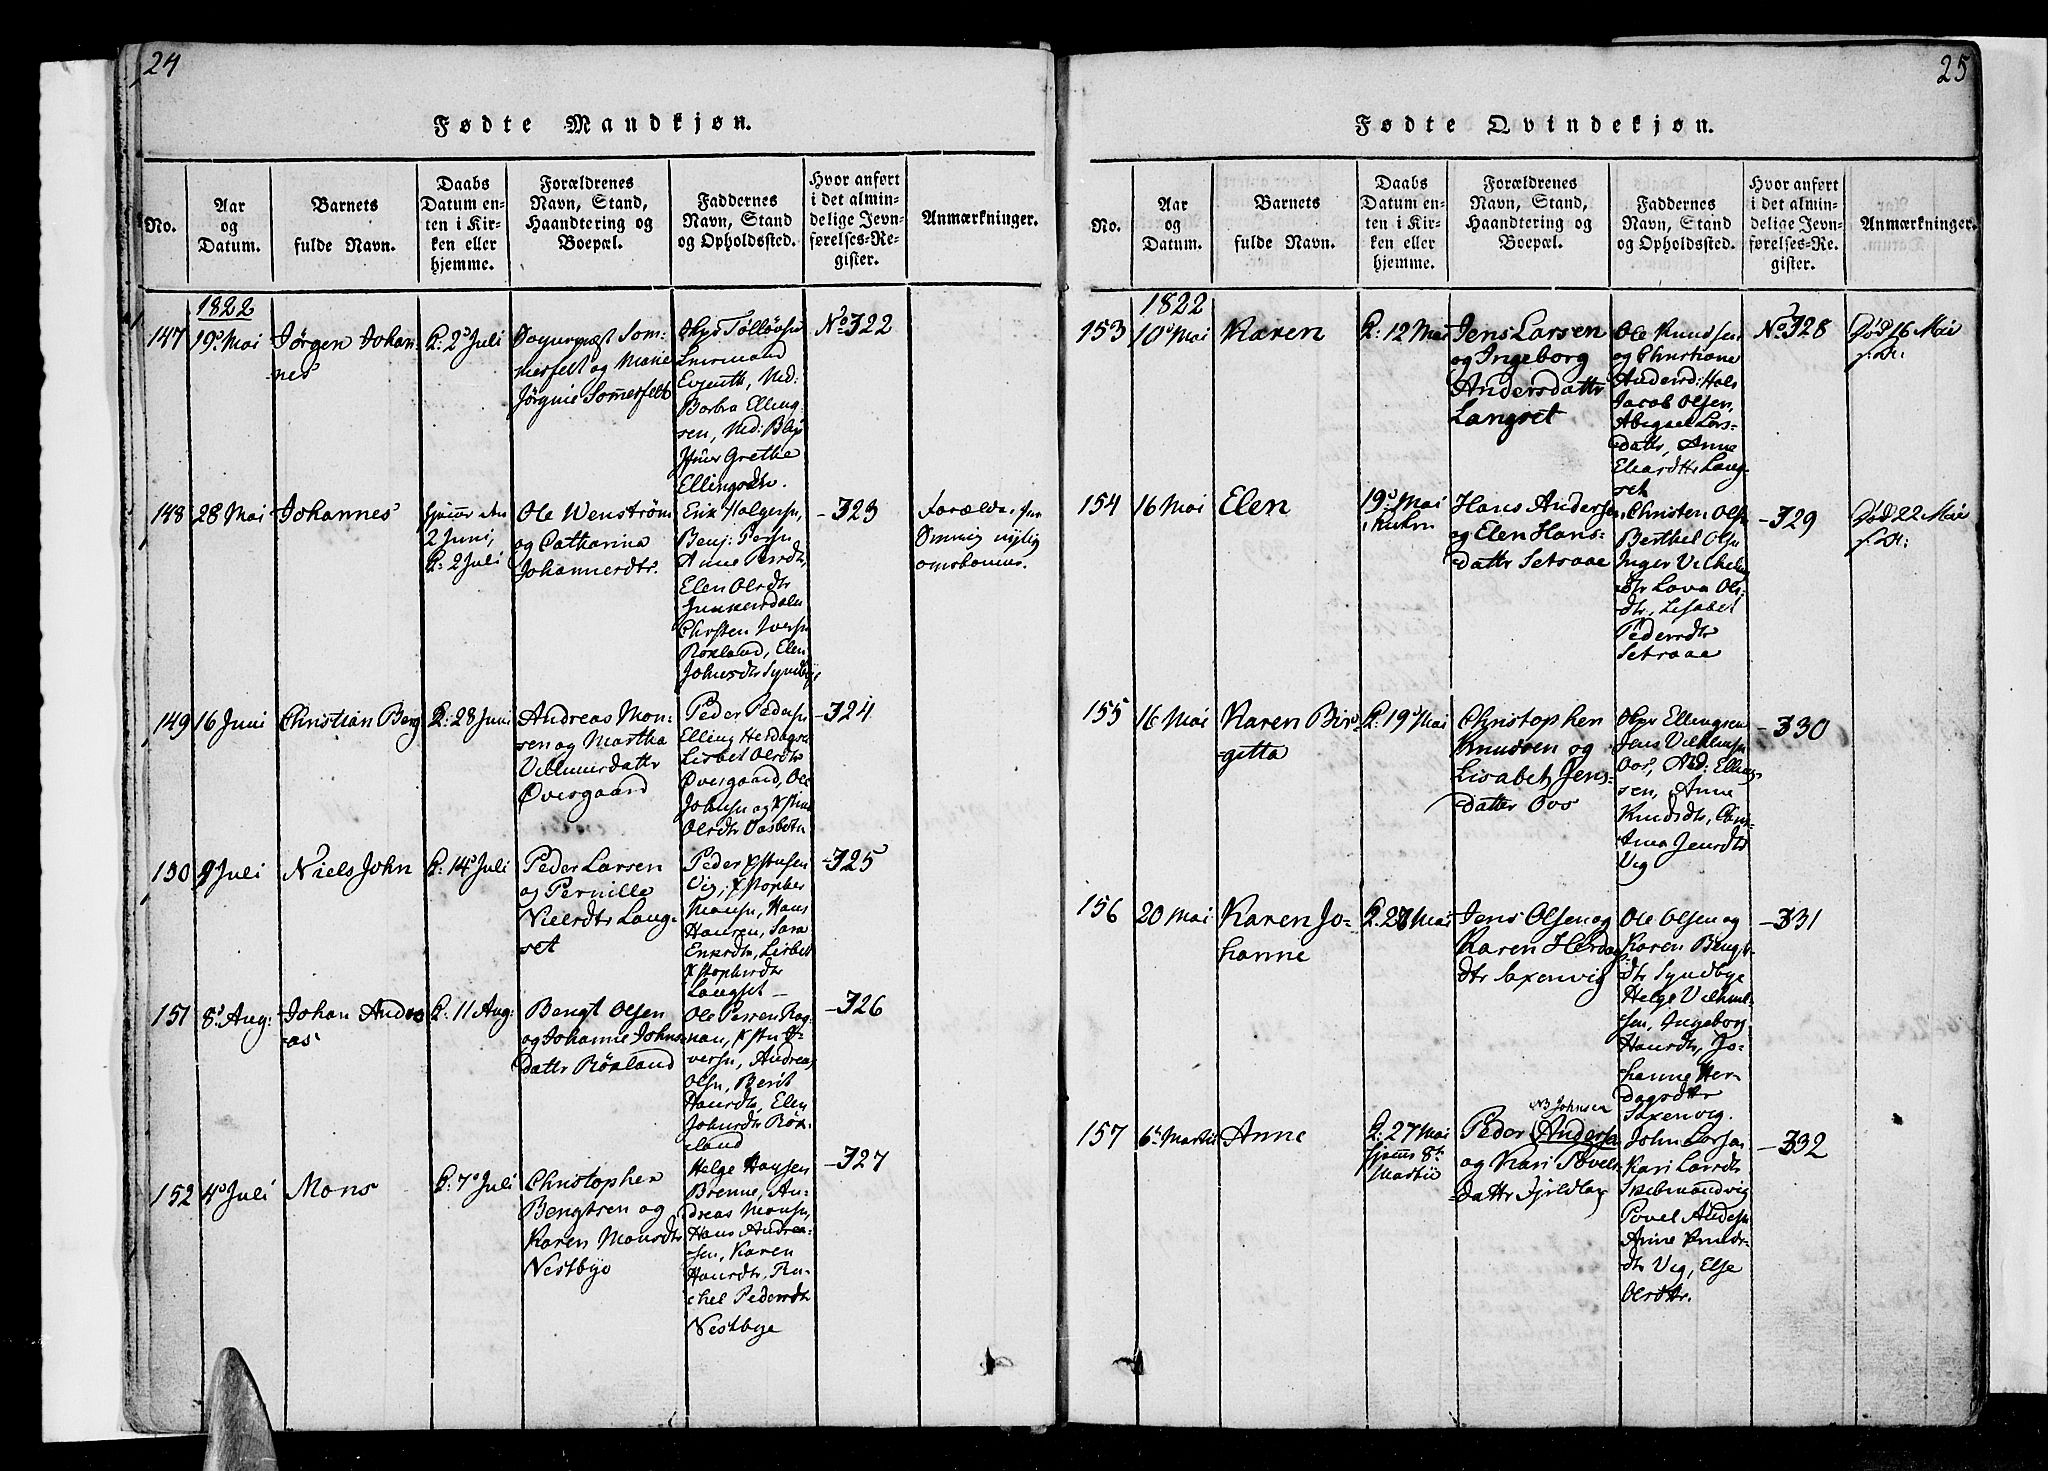 24
Fødte Mandkjøn.
No.
Aar
og
Datum.
Barnets
fulde Navn.
Daabs
Datum en-
ten i Kir-
ken eller
hjemme.
Forældrenes
Navn, Stand,
Haandtering og
Boepæl.
Faddernes
Navn, Stand
og Opholdssted.
Hvor anført
i det almin-
delige Jevn-
førelses-Re-
gister.
Anmærkninger.
1822
147
19 Mai
Jörgen Johan-
nes
K: 2 Juli
Sognepræst Som-
merfelt og Marie
Jörgine Somerfelt
Evjenth, Md:
Barbra Elling-
sen, Md:
Grethe
Ellingsdtr.
No 322
148
28 Mai
Johannes
2 Juni,
K: 2 Juli
Ole Wenström
og Catharina
Johannesdtr.
Erik Holgersn,
Benj: Persn
Anne Persdtr,
Elen Olsdtr
Junkersdalen
Christen Iversn
Röxland, Elen
Johnsdtr Syndbye
-323
omskommer.
149
16 Juni
Christian Berg
K: 28 Juni
Andreas Mon-
sen og Martha
Villumsdattr
Øvergaard
Peder Pedersn
Elling Herdagsen
Lisbet Olsdtr
Øvergaard, Ole
Johnsn og Xstina
Olsdtr
-324
150
Juli
Niels John
K: 14 Juli
Peder Larsen
og Pernille
Nielsdtr Lang-
set
Peder Xstensen
Vig, Xstopher
Monsn, Hans
Hansen, Sara
Eriksdtr, Lisbet
Xstophersdtr
Langset
-325
151
8 Aug:
Johan Andre-
as
K: 11 Aug:
Bengt Olsen
og Johanne Johns-
dattr Röxland
Ole Persen Rog-
nan, Xsten I-
versn, Andreas
Olsn, Berit
Hansdtr, Elen
Johnsdtr Röx-
land
-326
152
4 Juli
Mons
K: 7 Juli
Christopher
Bengtsen og
Karen Monsdtr
Nestbye
Helge Hansen
Brenne, An-
dreas Monsn,
Hans Andrea-
sen, Karen
Hansdtr, Ra-
chel Pedersdtr
Nestbye
-327
25
Fødte Qvindekjøn.
No.
Aar
og
Datum.
Barnets
fulde Navn.
Daabs
Datum en-
ten i Kir-
ken eller
hjemme.
Forældrenes
Navn, Stand,
Haandtering og
Boepæl.
Faddernes
Navn, Stand
og Opholdssted.
Hvor anført
i det almin-
delige Jevn-
førelses-Re-
gister.
Anmærkninger.
1822
153
10 Mai
Karen
K: 12 Mai
Jens Larsen
og Ingeborg
Andersdattr
Langset
Ole Knudsen
og Christiane
Andersd: Hals
Jacob Olsen,
Abigael Lars-
dattr, Anne
Lang-
set
No 328
Død 16 Mai
154
16 Mai
Elen
19 Mai
i Kirken
Hans Andersen
og Elen Hans-
dattr Setsaae
Christen Olsn
Berthel Olsn
Inger Vilhelms-
dtr Lava Ols-
dtr, Lisabet
Pedersdtr
Setsaae
-329
Død 22 Mai
155
16 Mai
Karen Bir-
gitta
K: 19 Mai
Christopher
Knudsen og
Lisabet Jens-
dattr Oos
Ellingsen
Jens Vilhelmsn
Oos, Md: Elling-
sen, Anne
Knudsdtr,
Anna Jensdtr
Vig
-330
156
20 Mai
Karen Jo-
hanne
K: 27 Mai
Jens Olsen og
Karen Herdags-
dtr Saxenvig
Ole Olsen og
Karen Bengts-
dtr Syndbye
Helge Vilhelm-
sen, Ingeborg
Hansdtr, Jo-
hanne Her-
dagsdtr
Saxenvig.
-331
157
6 Martii
Anne
K: 27 Mai
8
Martii
NB Johnsen
Peder Andersen
og Kari Povels-
dattr
John Larsen
Kari Larsdtr
Povel Andersn
Anne Knuds-
dtr Vig, Else
Olsdtr.
-332